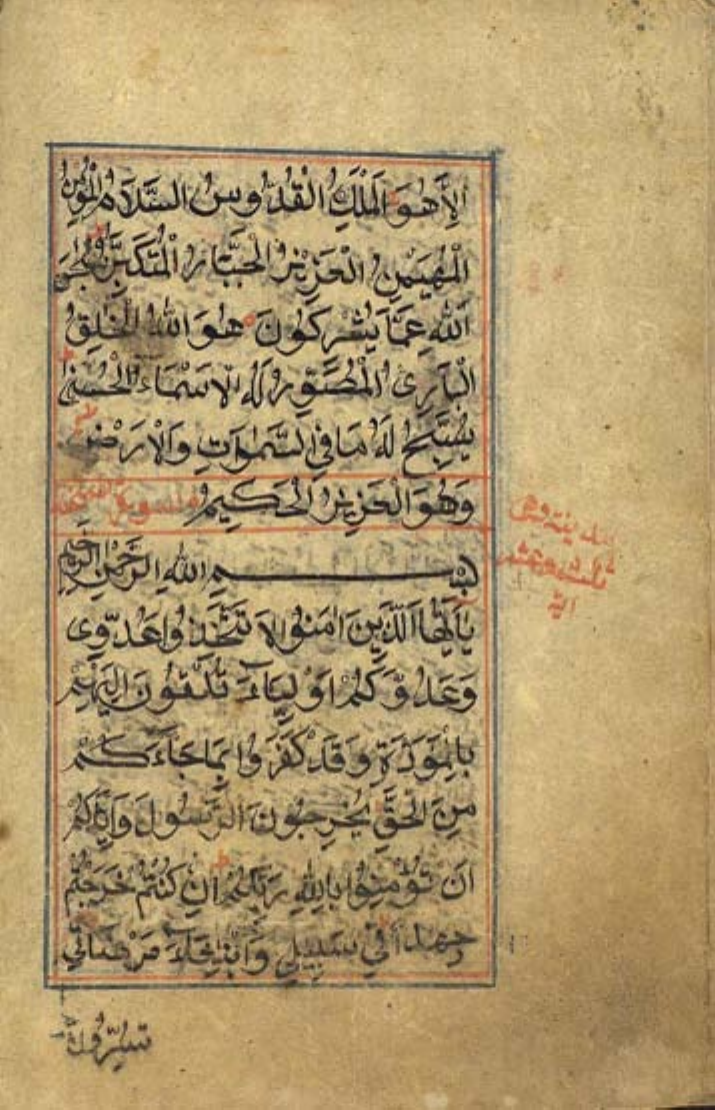 إِلَّا هُوَ الْمَلِكُ الْقُدُّوسُ السَّلَامُ الْمُؤْمِنُ
الْمُهَيْمِنُ الْعَزِيزُ الْجَبَّارُ الْمُتَكَبِّرُ سُبْحٰنَ
اللّٰهِ عَمَّا يُشْرِكُونَ هُوَ اللّٰهُ الْخٰلِقُ
الْبَارِئُ الْمُصَوِّرُ لَهُ الْاَسْمَاءُ الْحُسْنٰى
يُسَبِّحُ لَهُ مَا فِي السَّمٰوَاتِ وَالْاَرْضِ
وَهُوَ الْعَزِيزُ الْحَكِيمُ
بِسْمِ اللّٰهِ الرَّحْمٰنِ الرَّحِيمِ
يٰاَيُّهَا الَّذِينَ اٰمَنُوا لَا تَتَّخِذُوا عَدُوِّى
وَعَدُوَّكُمْ اَوْلِيَاءَ تُلْقُونَ اِلَيْهِمْ
بِالْمَوَدَّةِ وَقَدْ كَفَرُوا بِمَا جَاءَكُمْ
مِنَ الْحَقِّ يُخْرِجُونَ الرَّسُولَ وَاِيَّاكُمْ
اَنْ تُؤْمِنُوا بِاللّٰهِ رَبِّكُمْ اِنْ كُنْتُمْ خَرَجْتُمْ
جِهٰدًا فِي سَبِيلِي وَابْتِغَاءَ مَرْضَاتِي
تُسِرُّونَ